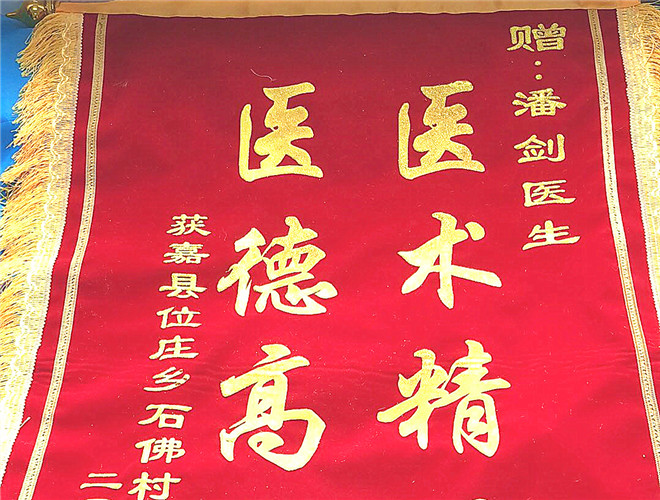 赠:潘剑医生
医术精
医德高
获嘉县位庄乡石佛村
二